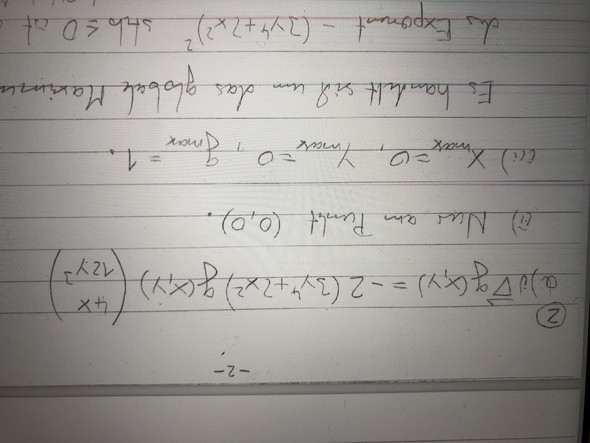 -2-
②
a) i) ∇⃗g(x,y) = -2 (3y⁴+2x²) g(x,y) (4x
12y³)
ii) Nur am Punkt (0,0).
iii) Xmax=0, Ymax=0, gmax=1.
Es handelt sich um das globale
des Exponent -(3y⁴+2x²)² stets ≤ 0 ist